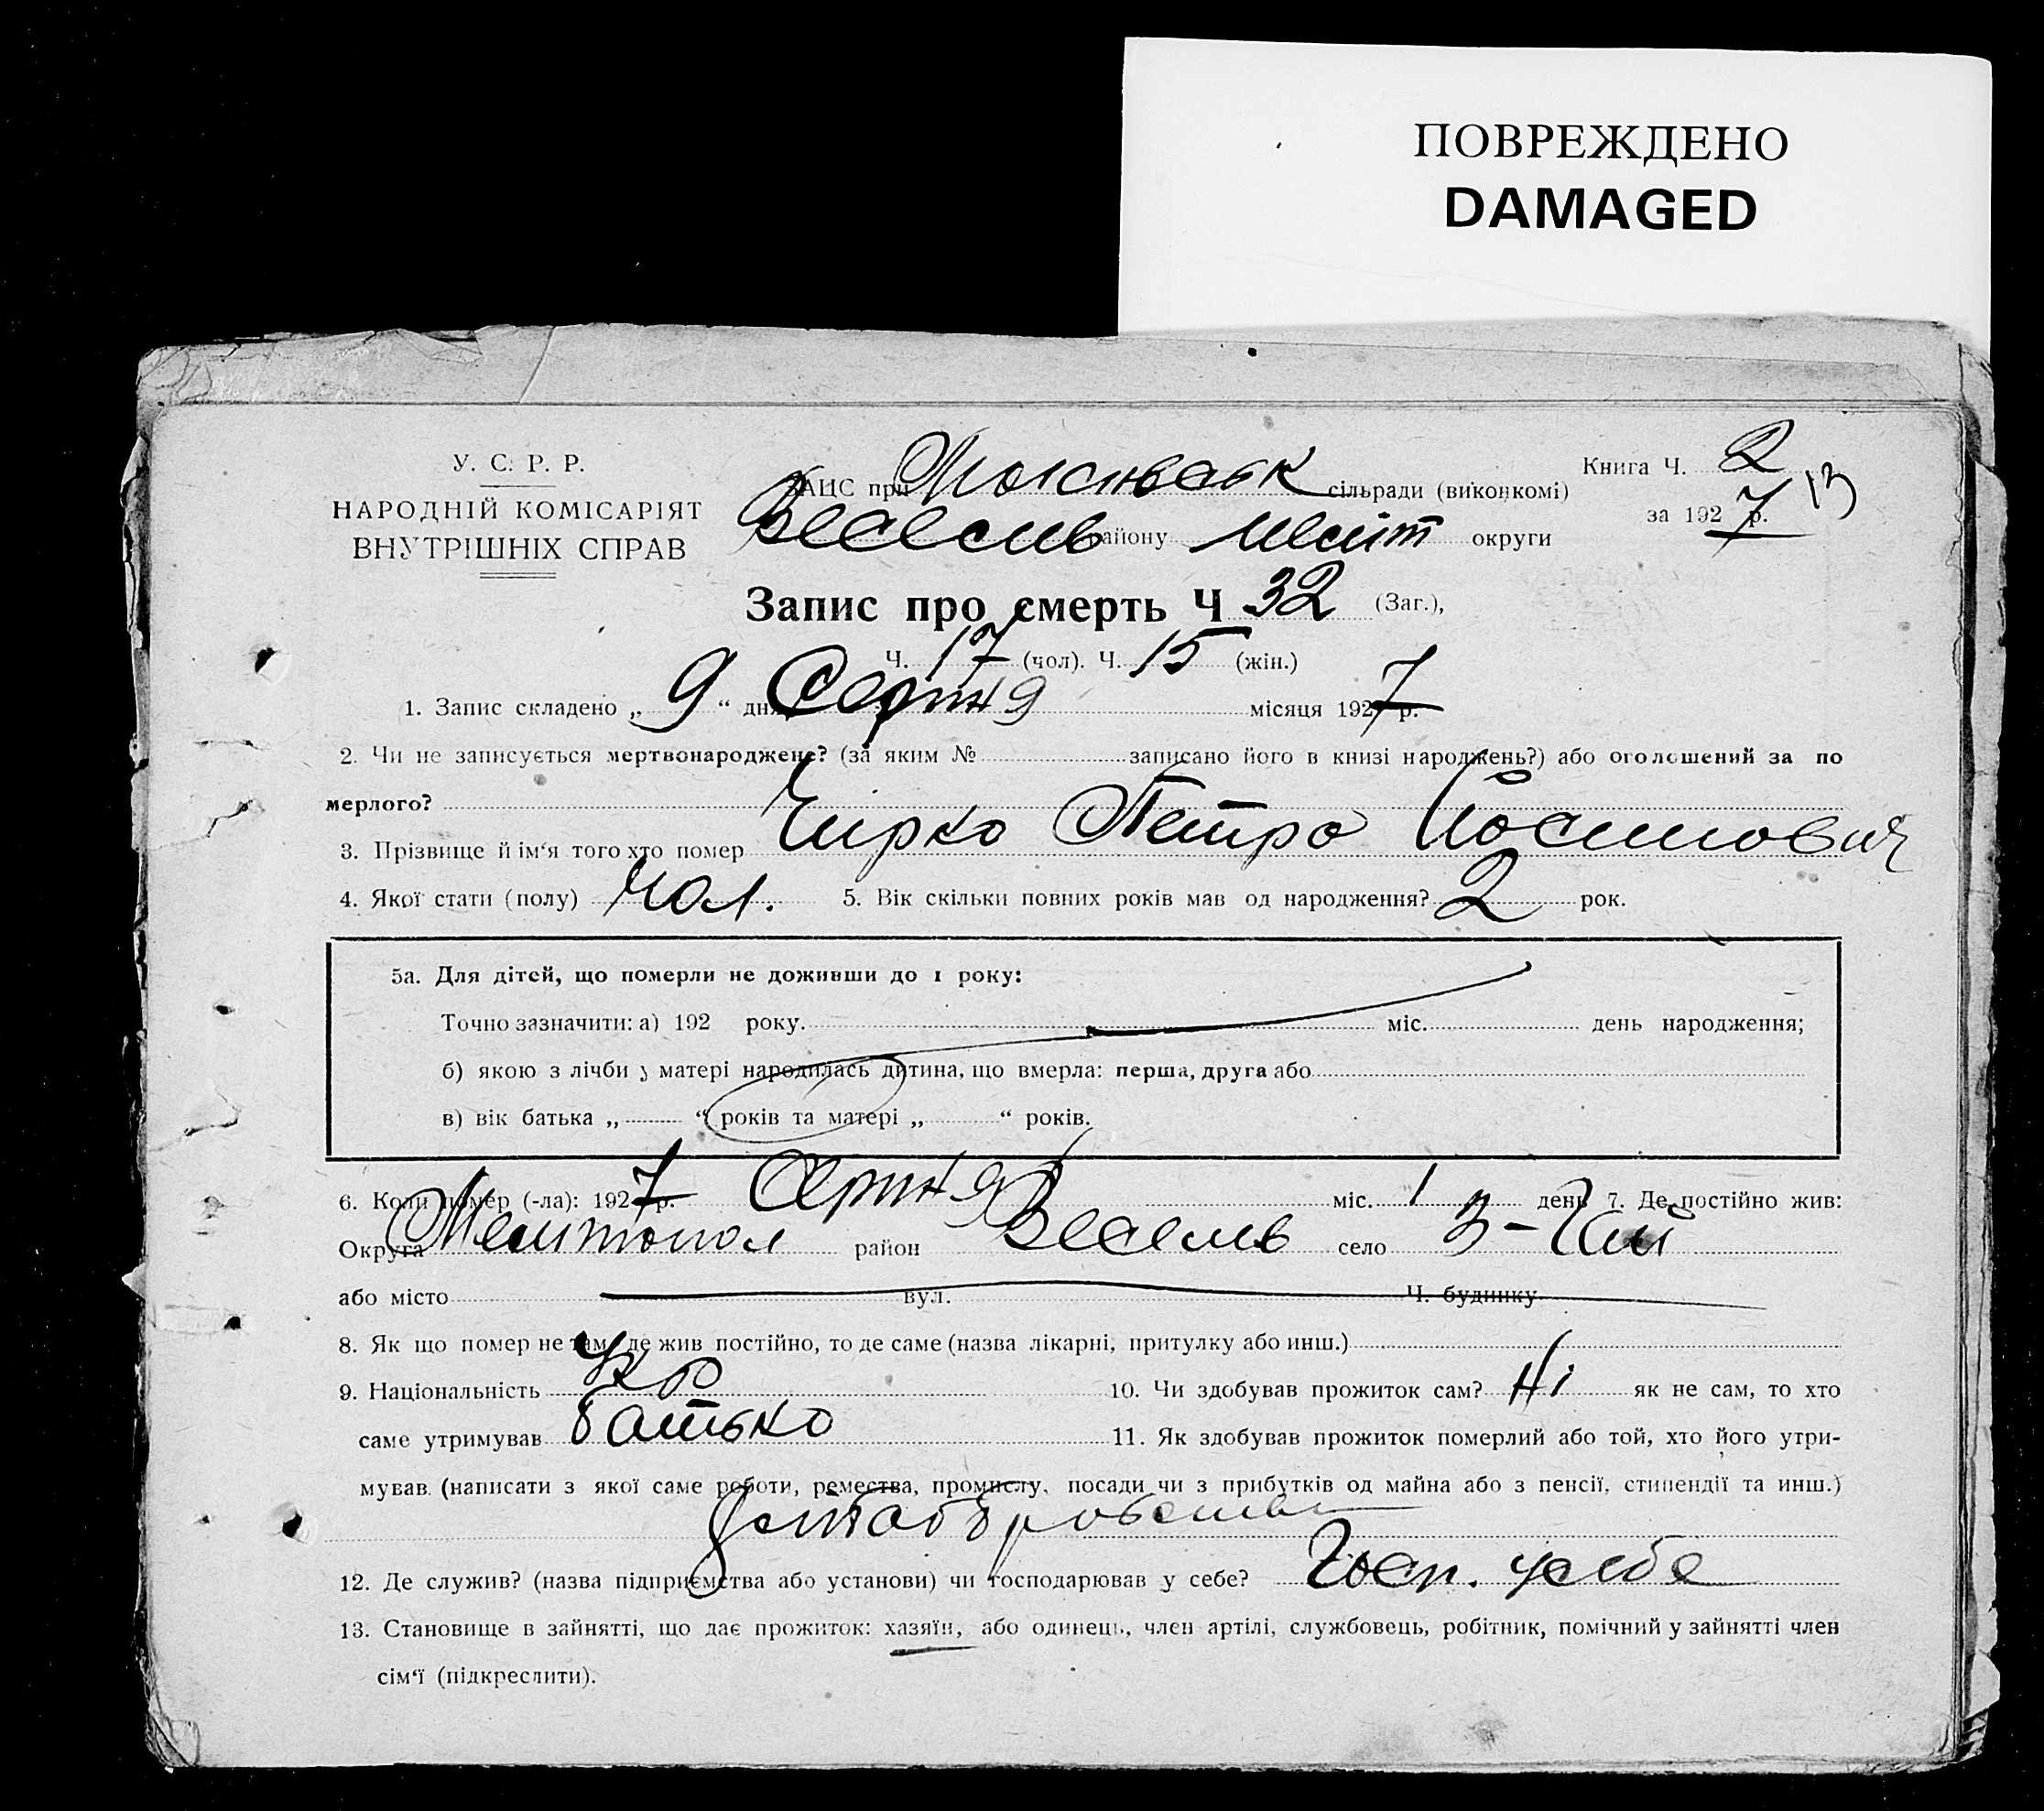 ПОВРЕЖДЕНО
DAMAGED
У. С. Р. Р.
НАРОДНІЙ КОМІСАРІЯТ
ВНУТРІШНІХ СПРАВ
ЗАЦС при сільради (виконкомі)
Весел району Меліт округи
Книга Ч. 2
за 1927 р. 13
Запис про смерть Ч 32 (Заг.),
Ч. 17 (чол). Ч. 15 (жін.)
1. Запис складено „ 9 “ дня Серпня місяця 1927 р.
2. Чи не записується мертвонароджене? (за яким № записано його в книзі народжень?) або оголошений за по
мерлого?
3. Прізвище й ім‘я того хто помер Чирко Петро Йосипович
4. Якої стати (полу) Чол. 5. Вік скільки повних років мав од народження? 2 рок.
5а. Для дітей, що померли не доживши до 1 року:
Точно зазначити: а) 192 року. міс. день народження;
б) якою з лічби у матері народилась дитина, що вмерла: перша, друга або
в) вік батька „ “ років та матері „ “ років.
6. Коли помер (-ла): 1927 р. Серпня міс. 1 день 7. Де постійно жив:
Округа Мелитопол район Весел село З-Гай
або місто вул. Ч. будинку
8. Як що помер не там, де жив постійно, то де саме (назва лікарні, притулку або инш.)
9. Національність Укр 10. Чи здобував прожиток сам? Ні як не сам, то хто
саме утримував батько 11. Як здобував прожиток померлий або той, хто його утри-
мував (написати з якої саме роботи, ремества, промислу, посади чи з прибутків од майна або з пенсії, стипендії та инш.)
12. Де служив? (назва підприємства або установи) чи господарював у себе? Госп. у себе
13. Становище в зайнятті, що дає прожиток: хазяїн, або одинець, член артілі, службовець, робітник, помічний у зайнятті член
сім‘ї (підкреслити).